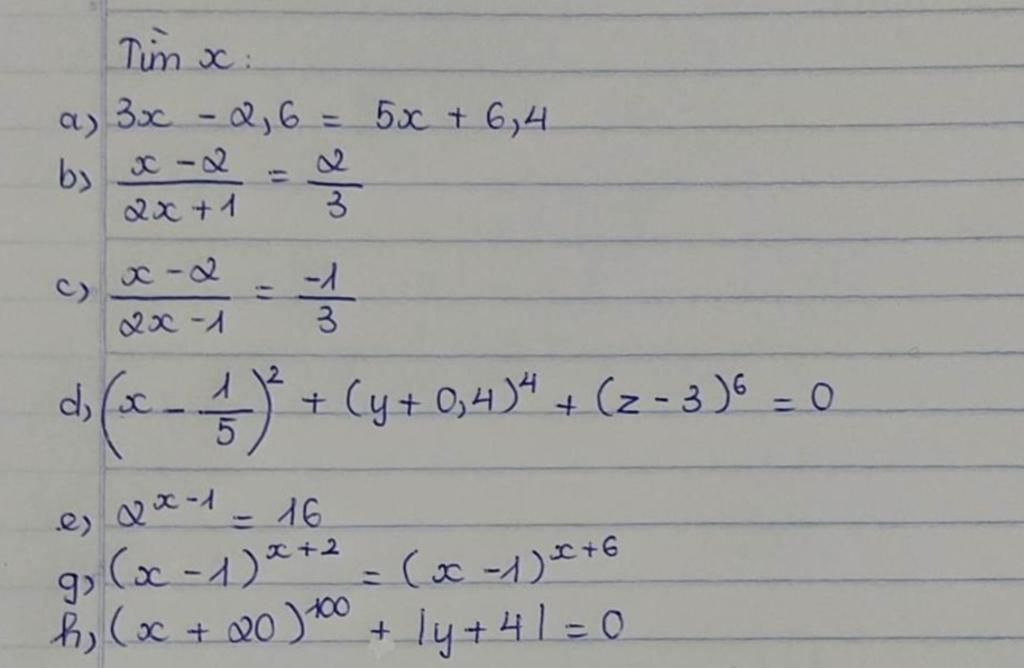 Tìm x:
a) 3x - 2,6 = 5x + 6,4
b) \frac{x-2}{2x+1} = \frac{2}{3}
c) \frac{x-2}{2x-1} = \frac{-1}{3}
d) \left(x - \frac{1}{5}\right)^2 + (y + 0,4)^4 + (z - 3)^6 = 0
e) 2^{x-1} = 16
g) (x - 1)^{x+2} = (x - 1)^{x+6}
h) (x + 20)^{100} + |y + 4| = 0